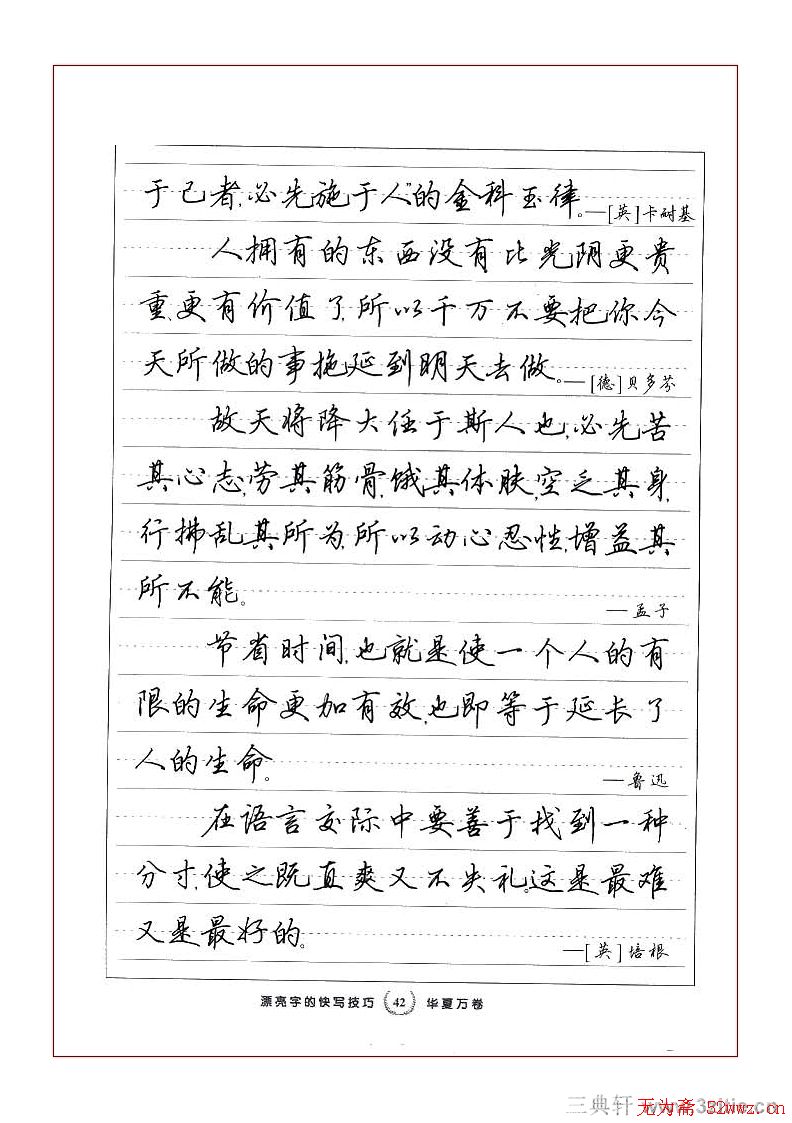 于己者,必先施于人”的金科玉律。—[英]卡耐基
人拥有的东西没有比光阴更贵
重、更有价值了,所以千万不要把你今
天所做的事拖延到明天去做。—[德]贝多芬
故天将降大任于斯人也,必先苦
其心志,劳其筋骨,饿其体肤,空乏其身,
行拂乱其所为,所以动心忍性,增益其
所不能。
—孟子
节省时间,也就是使一个人的有
限的生命更加有效,也即等于延长了
人的生命。
—鲁迅
在语言交际中要善于找到一种
分寸,使之既直爽又不失礼。这是最难
又是最好的。
—[英]培根
漂亮字的快写技巧 42 华夏万卷
三典轩
无为斋 52wwz.cn